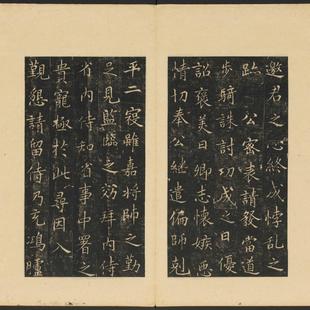 邀君之心終成悖亂之
跡公密表請發當道
步騎誅討功成之日優
詔褒美曰卿志懷嫉惡
情切奉公継遣偏師剋
平二寇雖嘉將帥之勤
足見監臨之效拜內侍
省內侍知省事中署之
貴寵極於此尋因入
覲懇請留侍乃充鴻臚